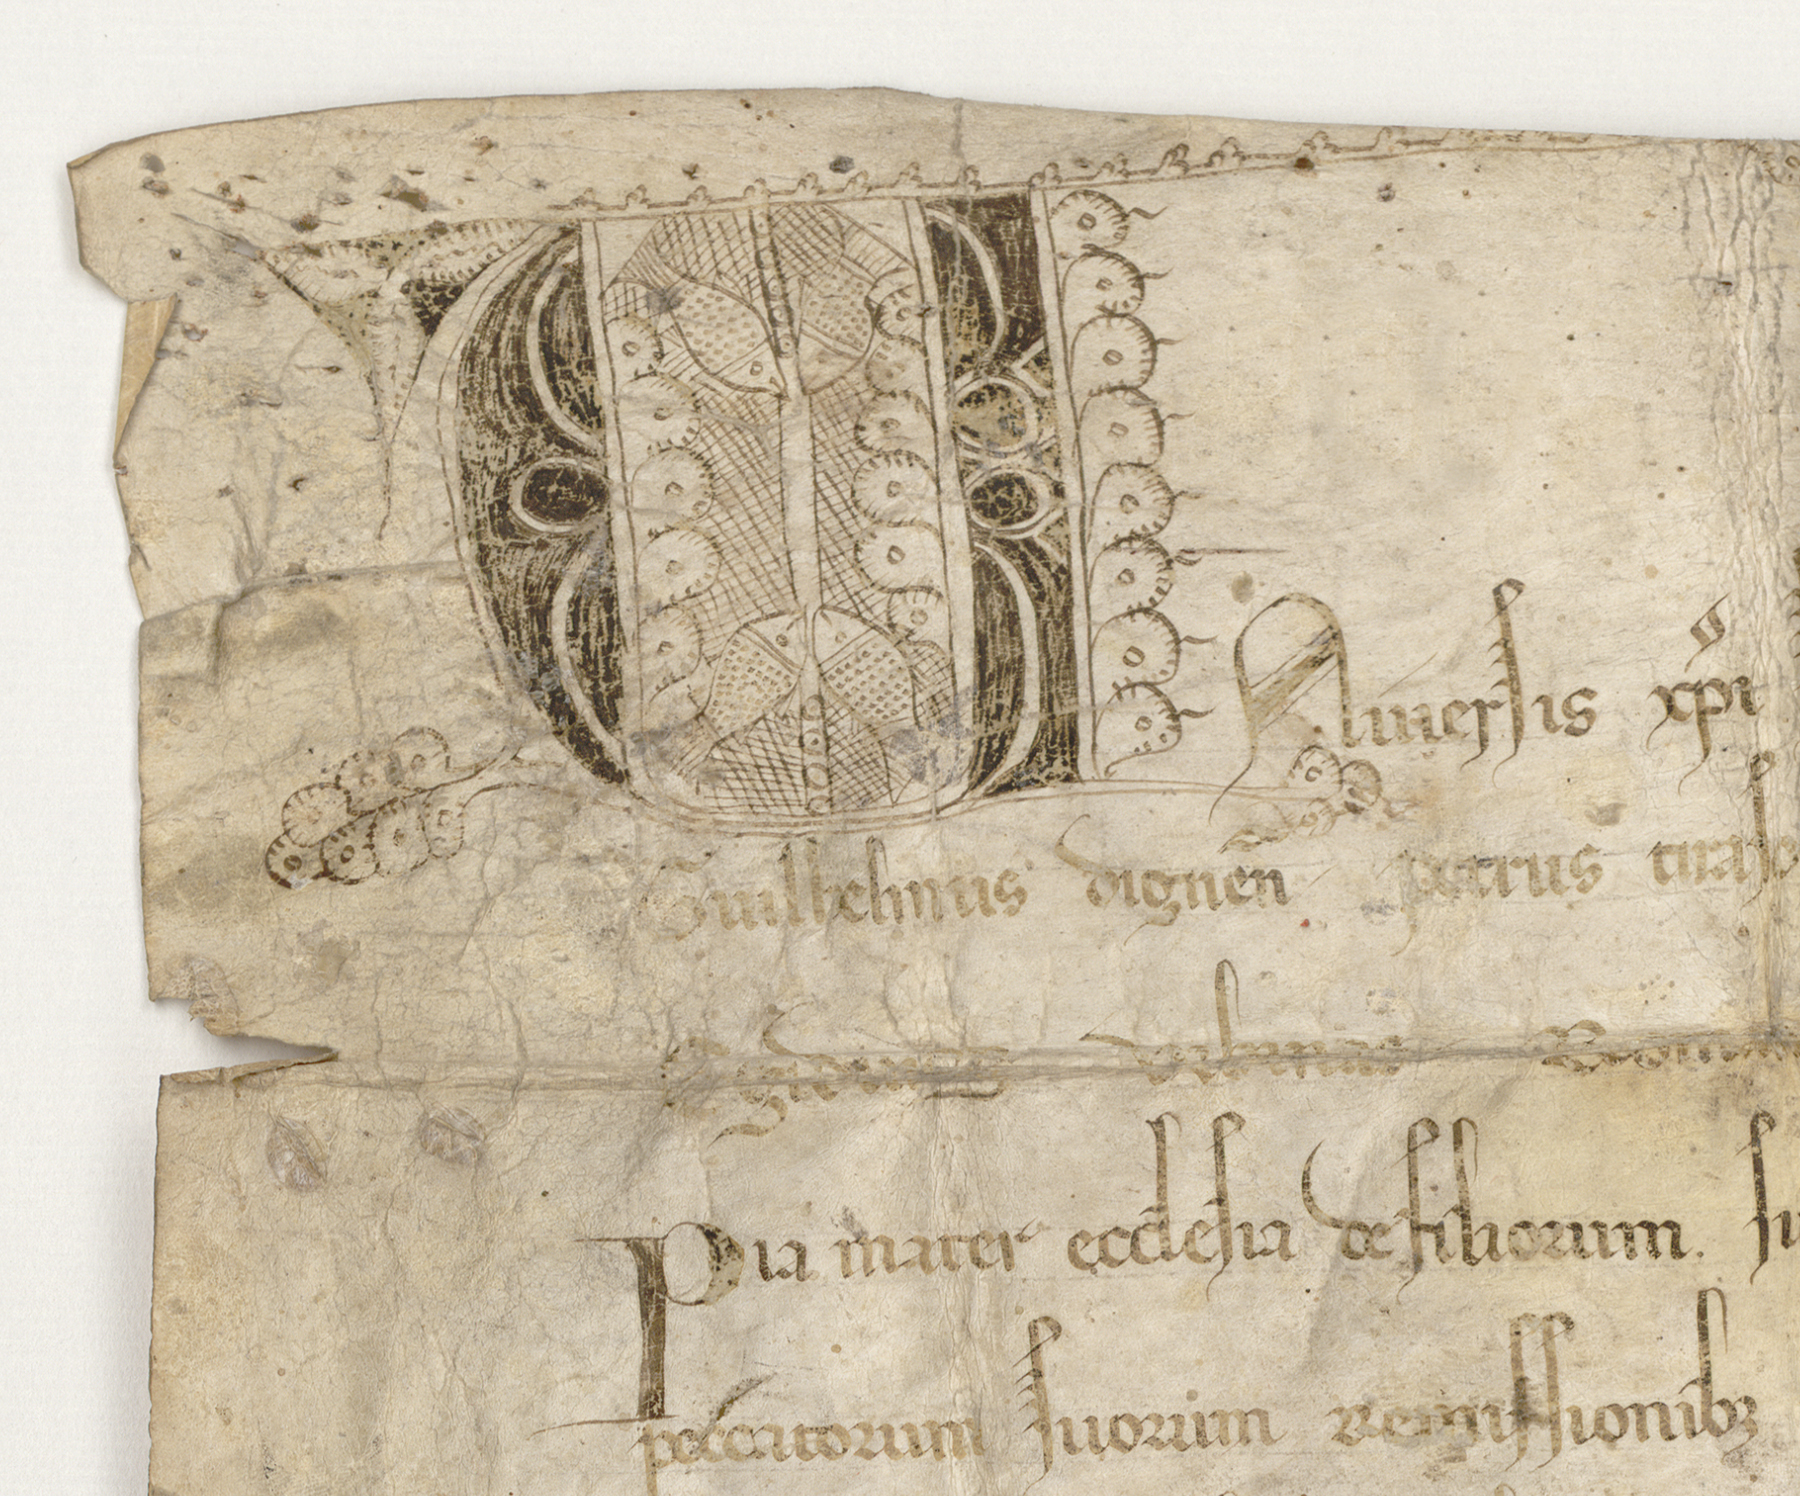 UNiuersis xpi
Guillelmus dignen petrus
Egidius Urbinas
Pia mater ecclesia de filiorum. su
peccatorum suorum remissionibz